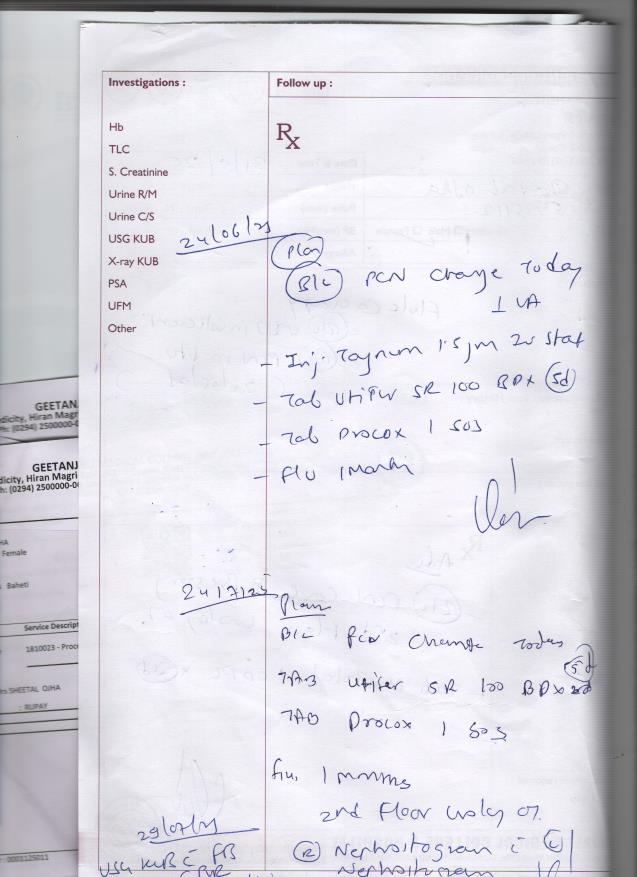 Investigations :
Follow up :
Hb
Rx
TLC
S. Creatinine
Urine R/M
Urine C/S
USG KUB
24/06/25
Plan
X-ray KUB
B/L PCN change today
PSA
↓ LA
UFM
Other
- Inj. 1.5 gm IV stat
GEETANJ
dicity, Hiran Magri
Ph: (0294) 2500000-0
- Tab Utifer SR 100 BD x 5d
- Tab Procox 1 SOS
GEETANJ
dicity, Hiran Magri
h: (0294) 2500000-0
- F/U 1 Month
HA
Female
Baheti
24/7/25
Plan
B/L PCN change today
Service Descript
1810023 - Proc
TAB Utifer SR 100 BD x 5d
rs SHEETAL OJHA
: RUPAY
TAB Procox 1 SOS
F/u, 1 months
2nd Floor OT
29/07/25
: 0001125011
(R) Nephrostogram c (L)
USG KUB c FB
Nephrostogram
c PVR